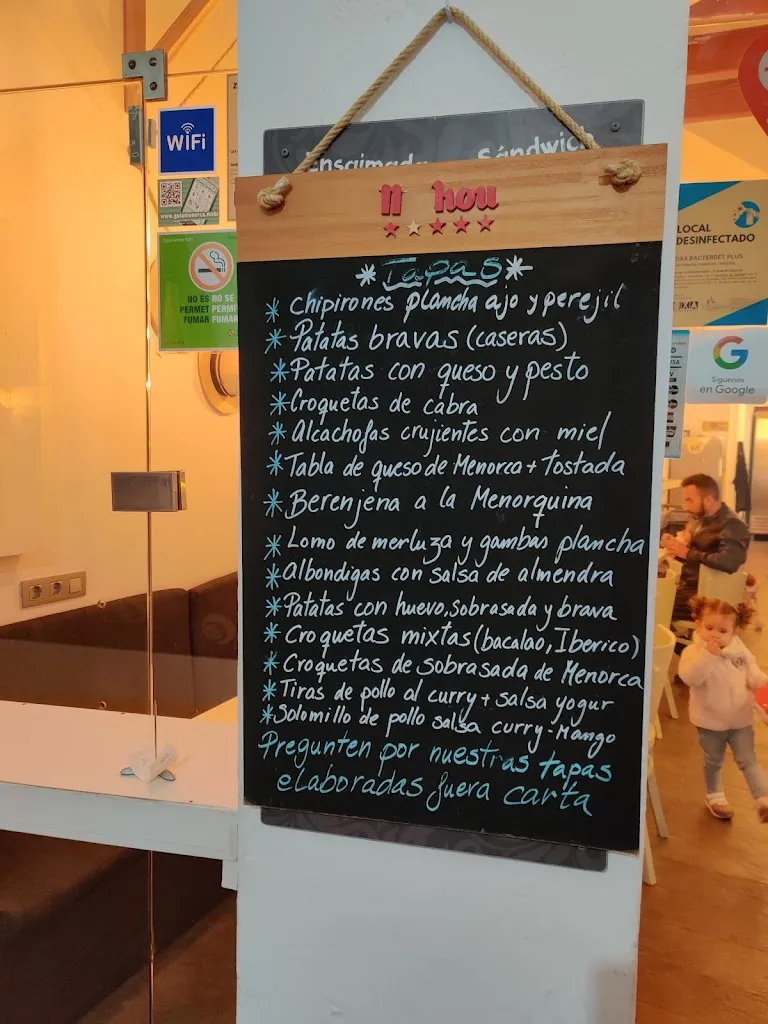 WiFi
www.golamenorca.mobi
NO ES NO SE
PERMET PERMI
FUMAR FUMAR
Ensaimada Sándwich
M hou
*Tapas*
* Chipirones plancha ajo y perejil
* Patatas bravas (caseras)
* Patatas con queso y pesto
* Croquetas de cabra
* Alcachofas crujientes con miel
* Tabla de queso de Menorca + tostada
* Berenjena a la Menorquina
* Lomo de merluza y gambas plancha
* Albondigas con salsa de almendra
* Patatas con huevo, sobrasada y brava
* Croquetas mixtas (bacalao, Iberico)
* Croquetas de sobrasada de Menorca
* Tiras de pollo al curry + salsa yogur
* Solomillo de pollo salsa curry-Mango
Pregunten por nuestras tapas
elaboradas fuera carta
LOCAL
DESINFECTADO
G
Síguenos
en Google